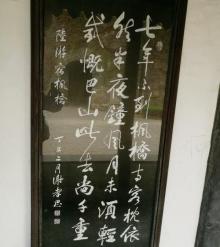 七年不到楓橋寺客枕依
然半夜鐘風月未須輕
感慨巴山此去尚千重
陸游宿楓橋
丁 二月謝孝思